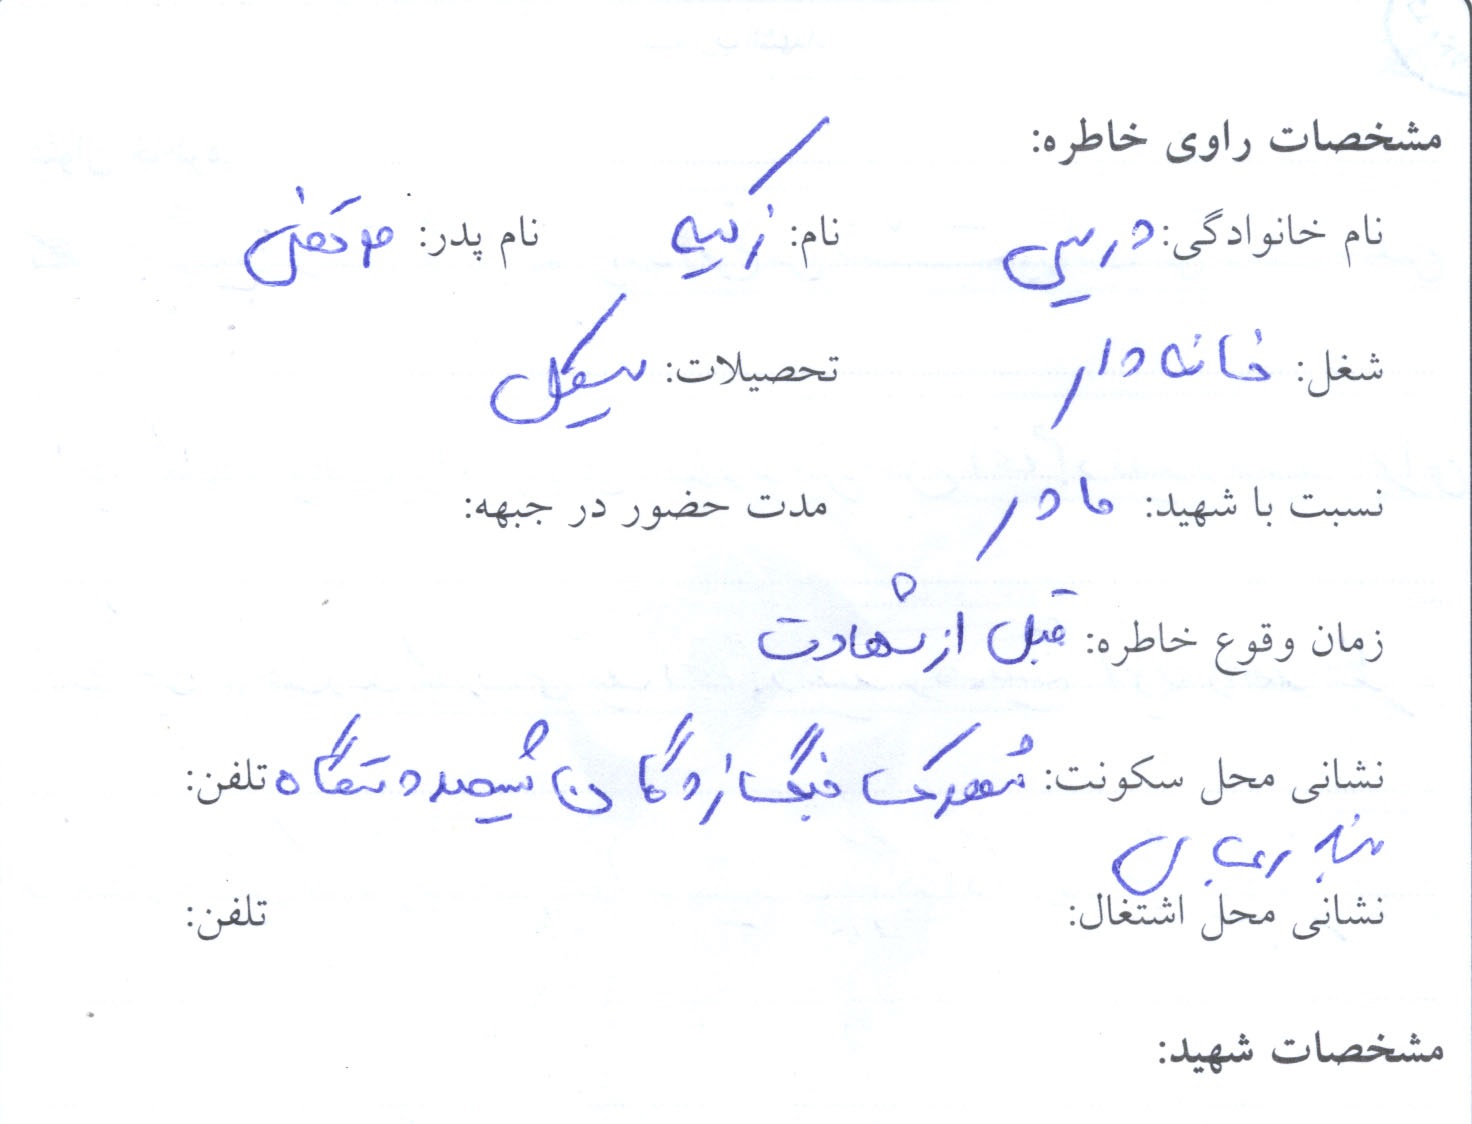 مشخصات راوی خاطره:
نام خانوادگی: دریس نام: زکیه نام پدر: مرتضی
شغل: خانه دار تحصیلات: سیکل
نسبت با شهید: مادر مدت حضور در جبهه:
زمان وقوع خاطره: قبل از شهادت
نشانی محل سکونت: شهرک جنگزدگان ششصد دستگاه تلفن:
بندر
نشانی محل اشتغال: تلفن:
مشخصات شهید: